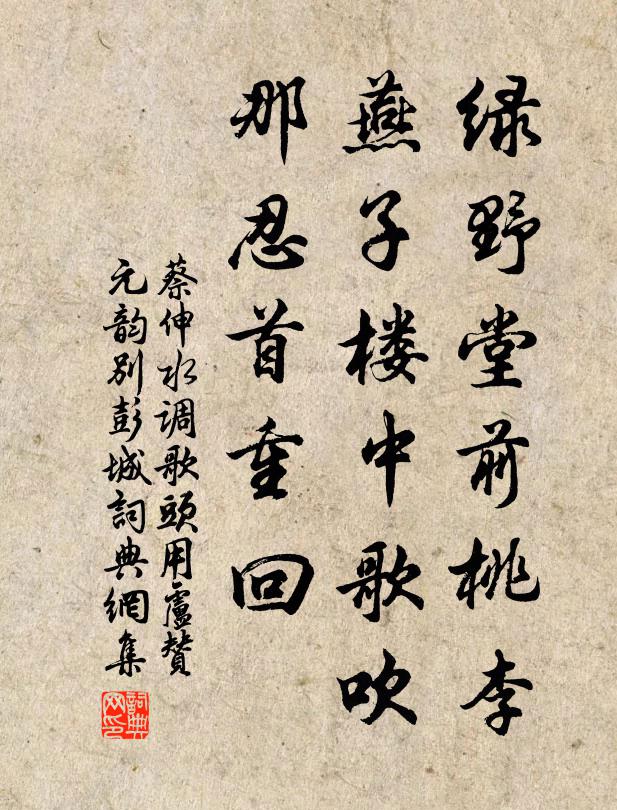 绿野堂前桃李
燕子楼中歌吹
那忍首重回
蔡伸水调歌頭用盧贊
元韵别彭城詞典網集
詞典网印